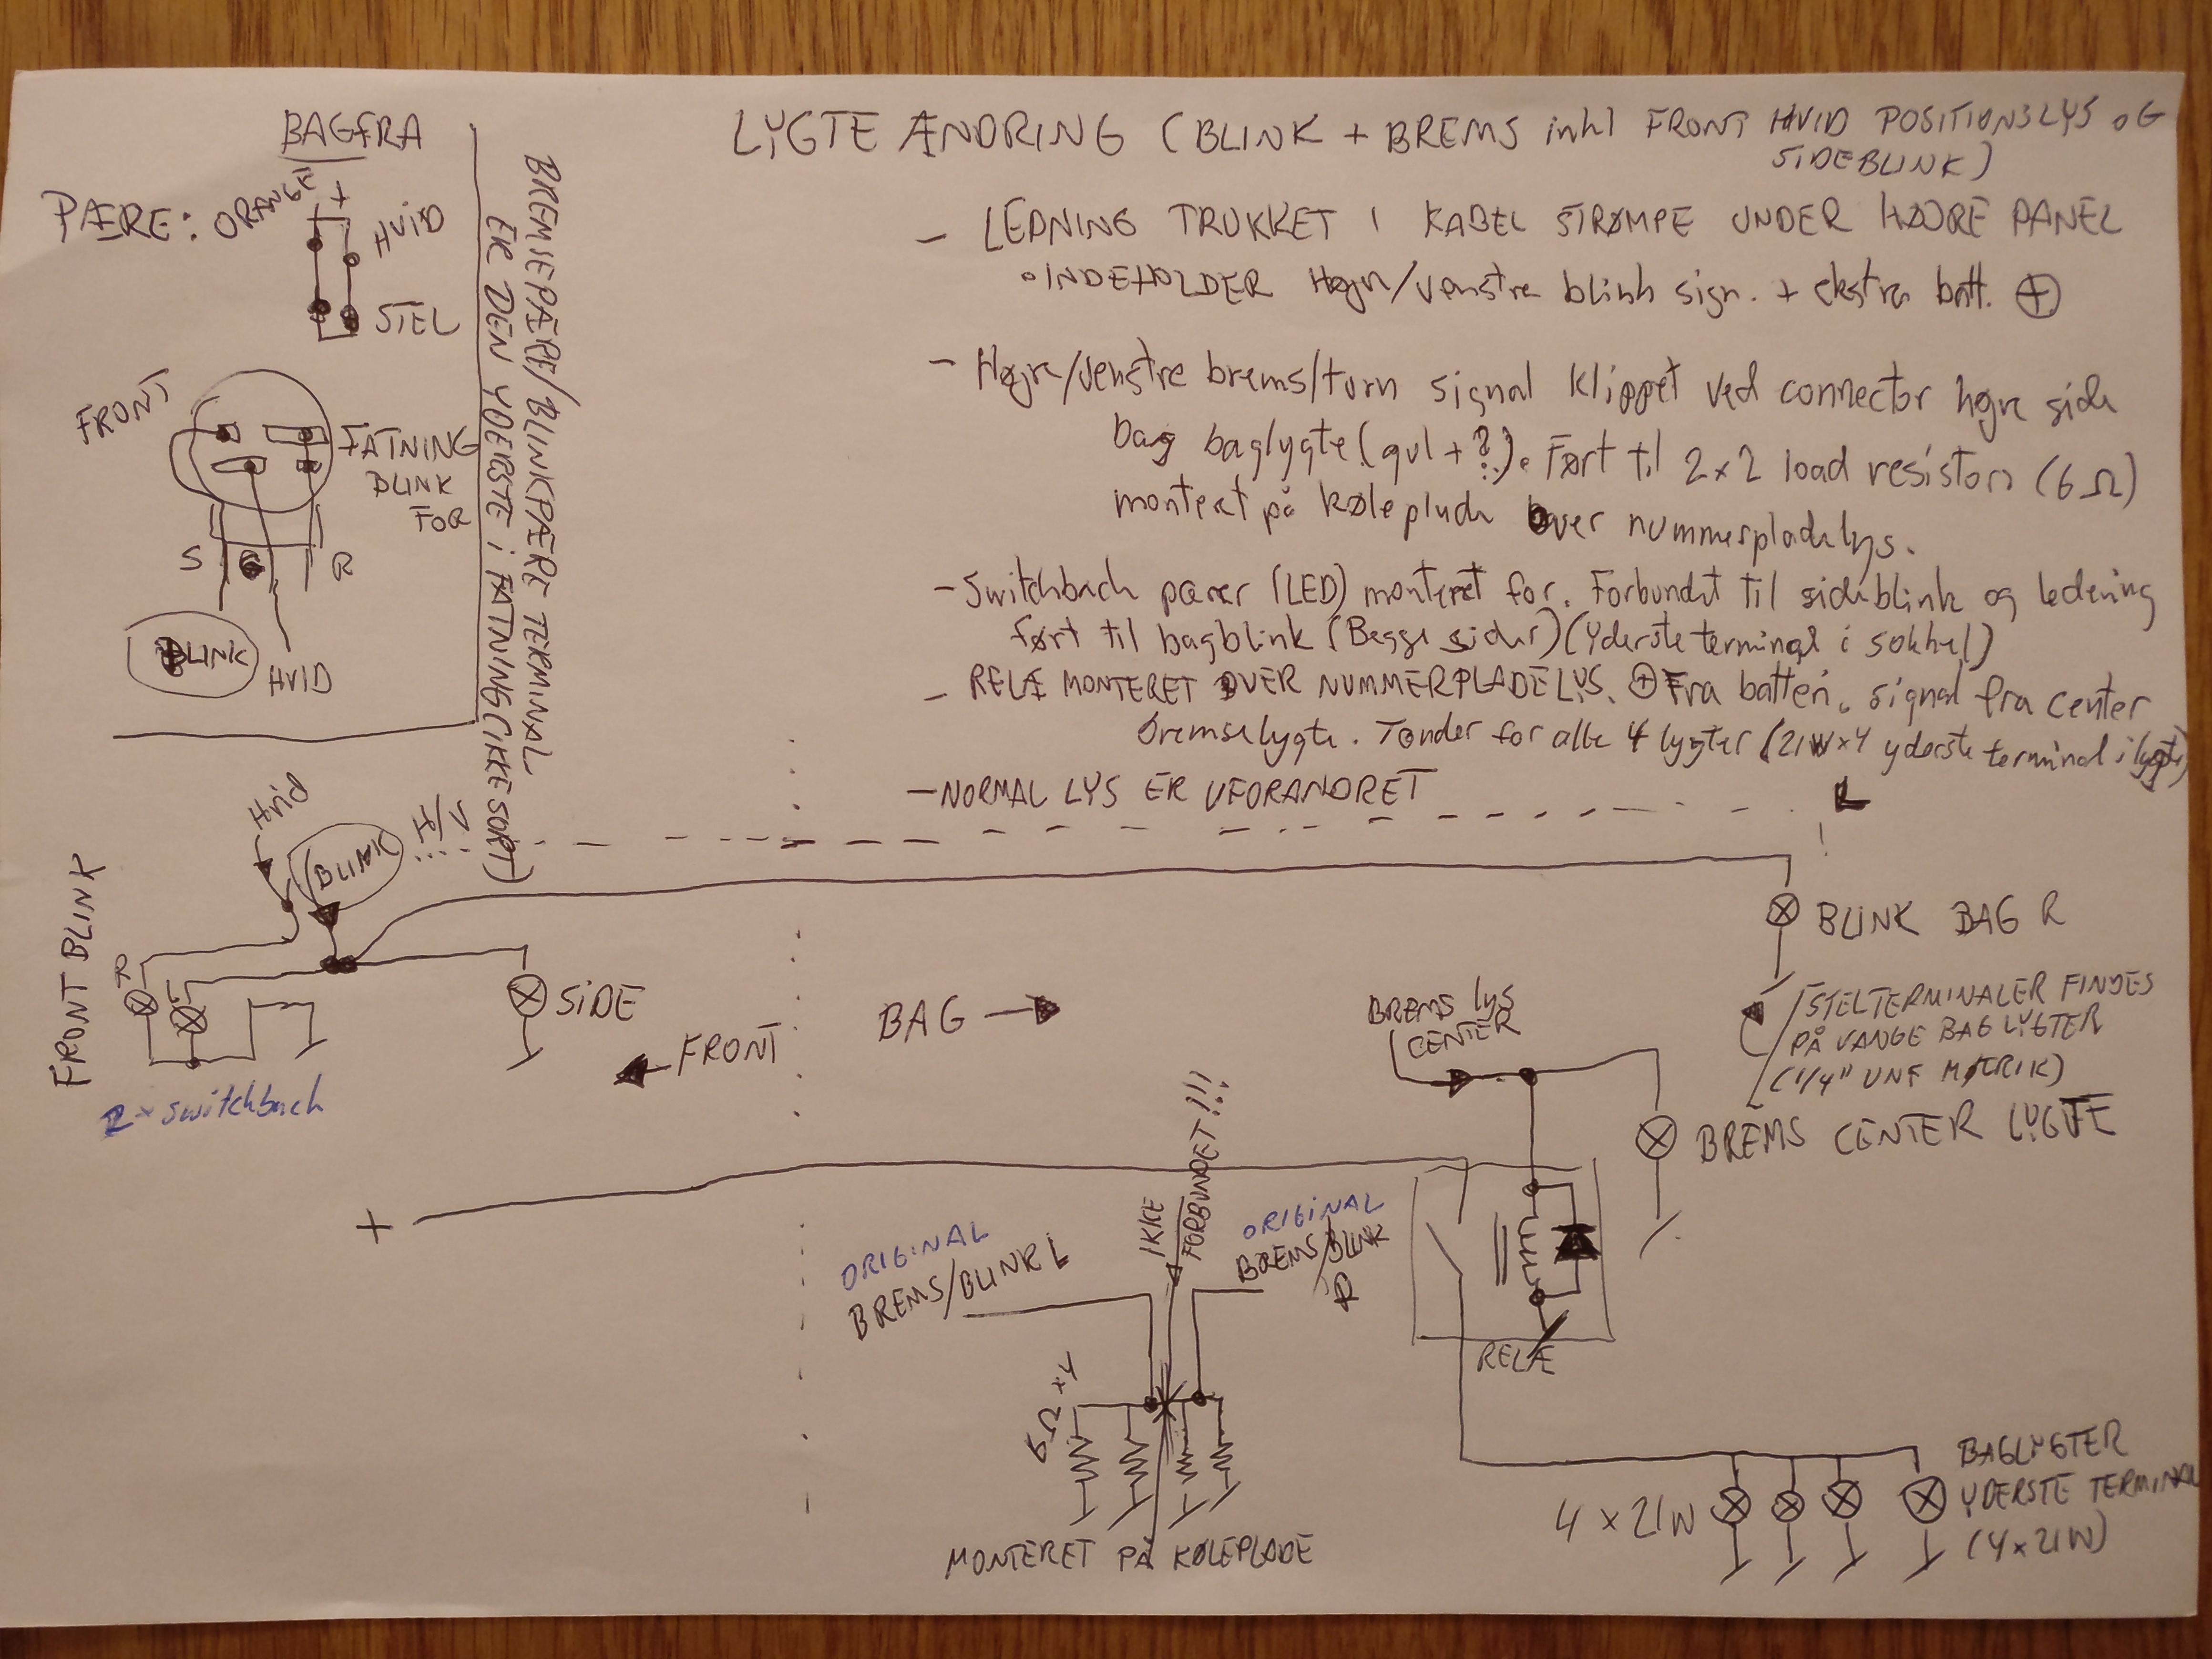 BAGFRA
PÆRE: ORANGE +
HVID
STEL
FRONT
FATNING
BLINK
FOR
S
R
BLINK
HVID
BREMSEPÆRE/BLINKPÆRE TERMINAL
ER DEN YDERSTE i FATNING (IKKE SORT)
LYGTE ÆNDRING (BLINK + BREMS inkl FRONT HVID POSITIONSLYS OG
SIDEBLINK)
- LEDNING TRUKKET I KABEL STRØMPE UNDER HØJRE PANEL
• INDEHOLDER Højre/venstre blink sign. + ekstra batt. ⊕
- Højre/venstre brems/turn signal klippet ved connector højre side
bag baglygte (gul + ?). Ført til 2x2 load resistors (6Ω)
monteret på køleplade over nummerpladelys.
- Switchback pærer (LED) monteret for. Forbundet til sideblink og ledning
ført til bagblink (Begge sider) (yderste terminal i sokkel)
- RELÆ MONTERET OVER NUMMERPLADELYS. ⊕ Fra batteri, signal fra center
bremselygte. Tænder for alle 4 lygter (21W x 4 yderste terminal i lygte)
- NORMAL LYS ER UFORANDRET
L
Hvid
BLINK
FRONT BLINK
R
SIDE
2x switchback
← FRONT
BAG →
BLINK BAG R
STELTERMINALER FINDES
PÅ VANGE BAG LYGTER
(1/4" UNF MØTRIK)
BREMS lys
CENTER
BREMS CENTER LYGTE
+
ORIGINAL
BREMS/BLINK L
IKKE
FORBUNDET!!!
ORIGINAL
BREMS/BLINK
R
RELÆ
6Ω x4
MONTERET PÅ KØLEPLADE
4 x 21W
BAGLYGTER
YDERSTE TERMINAL
(4x21W)